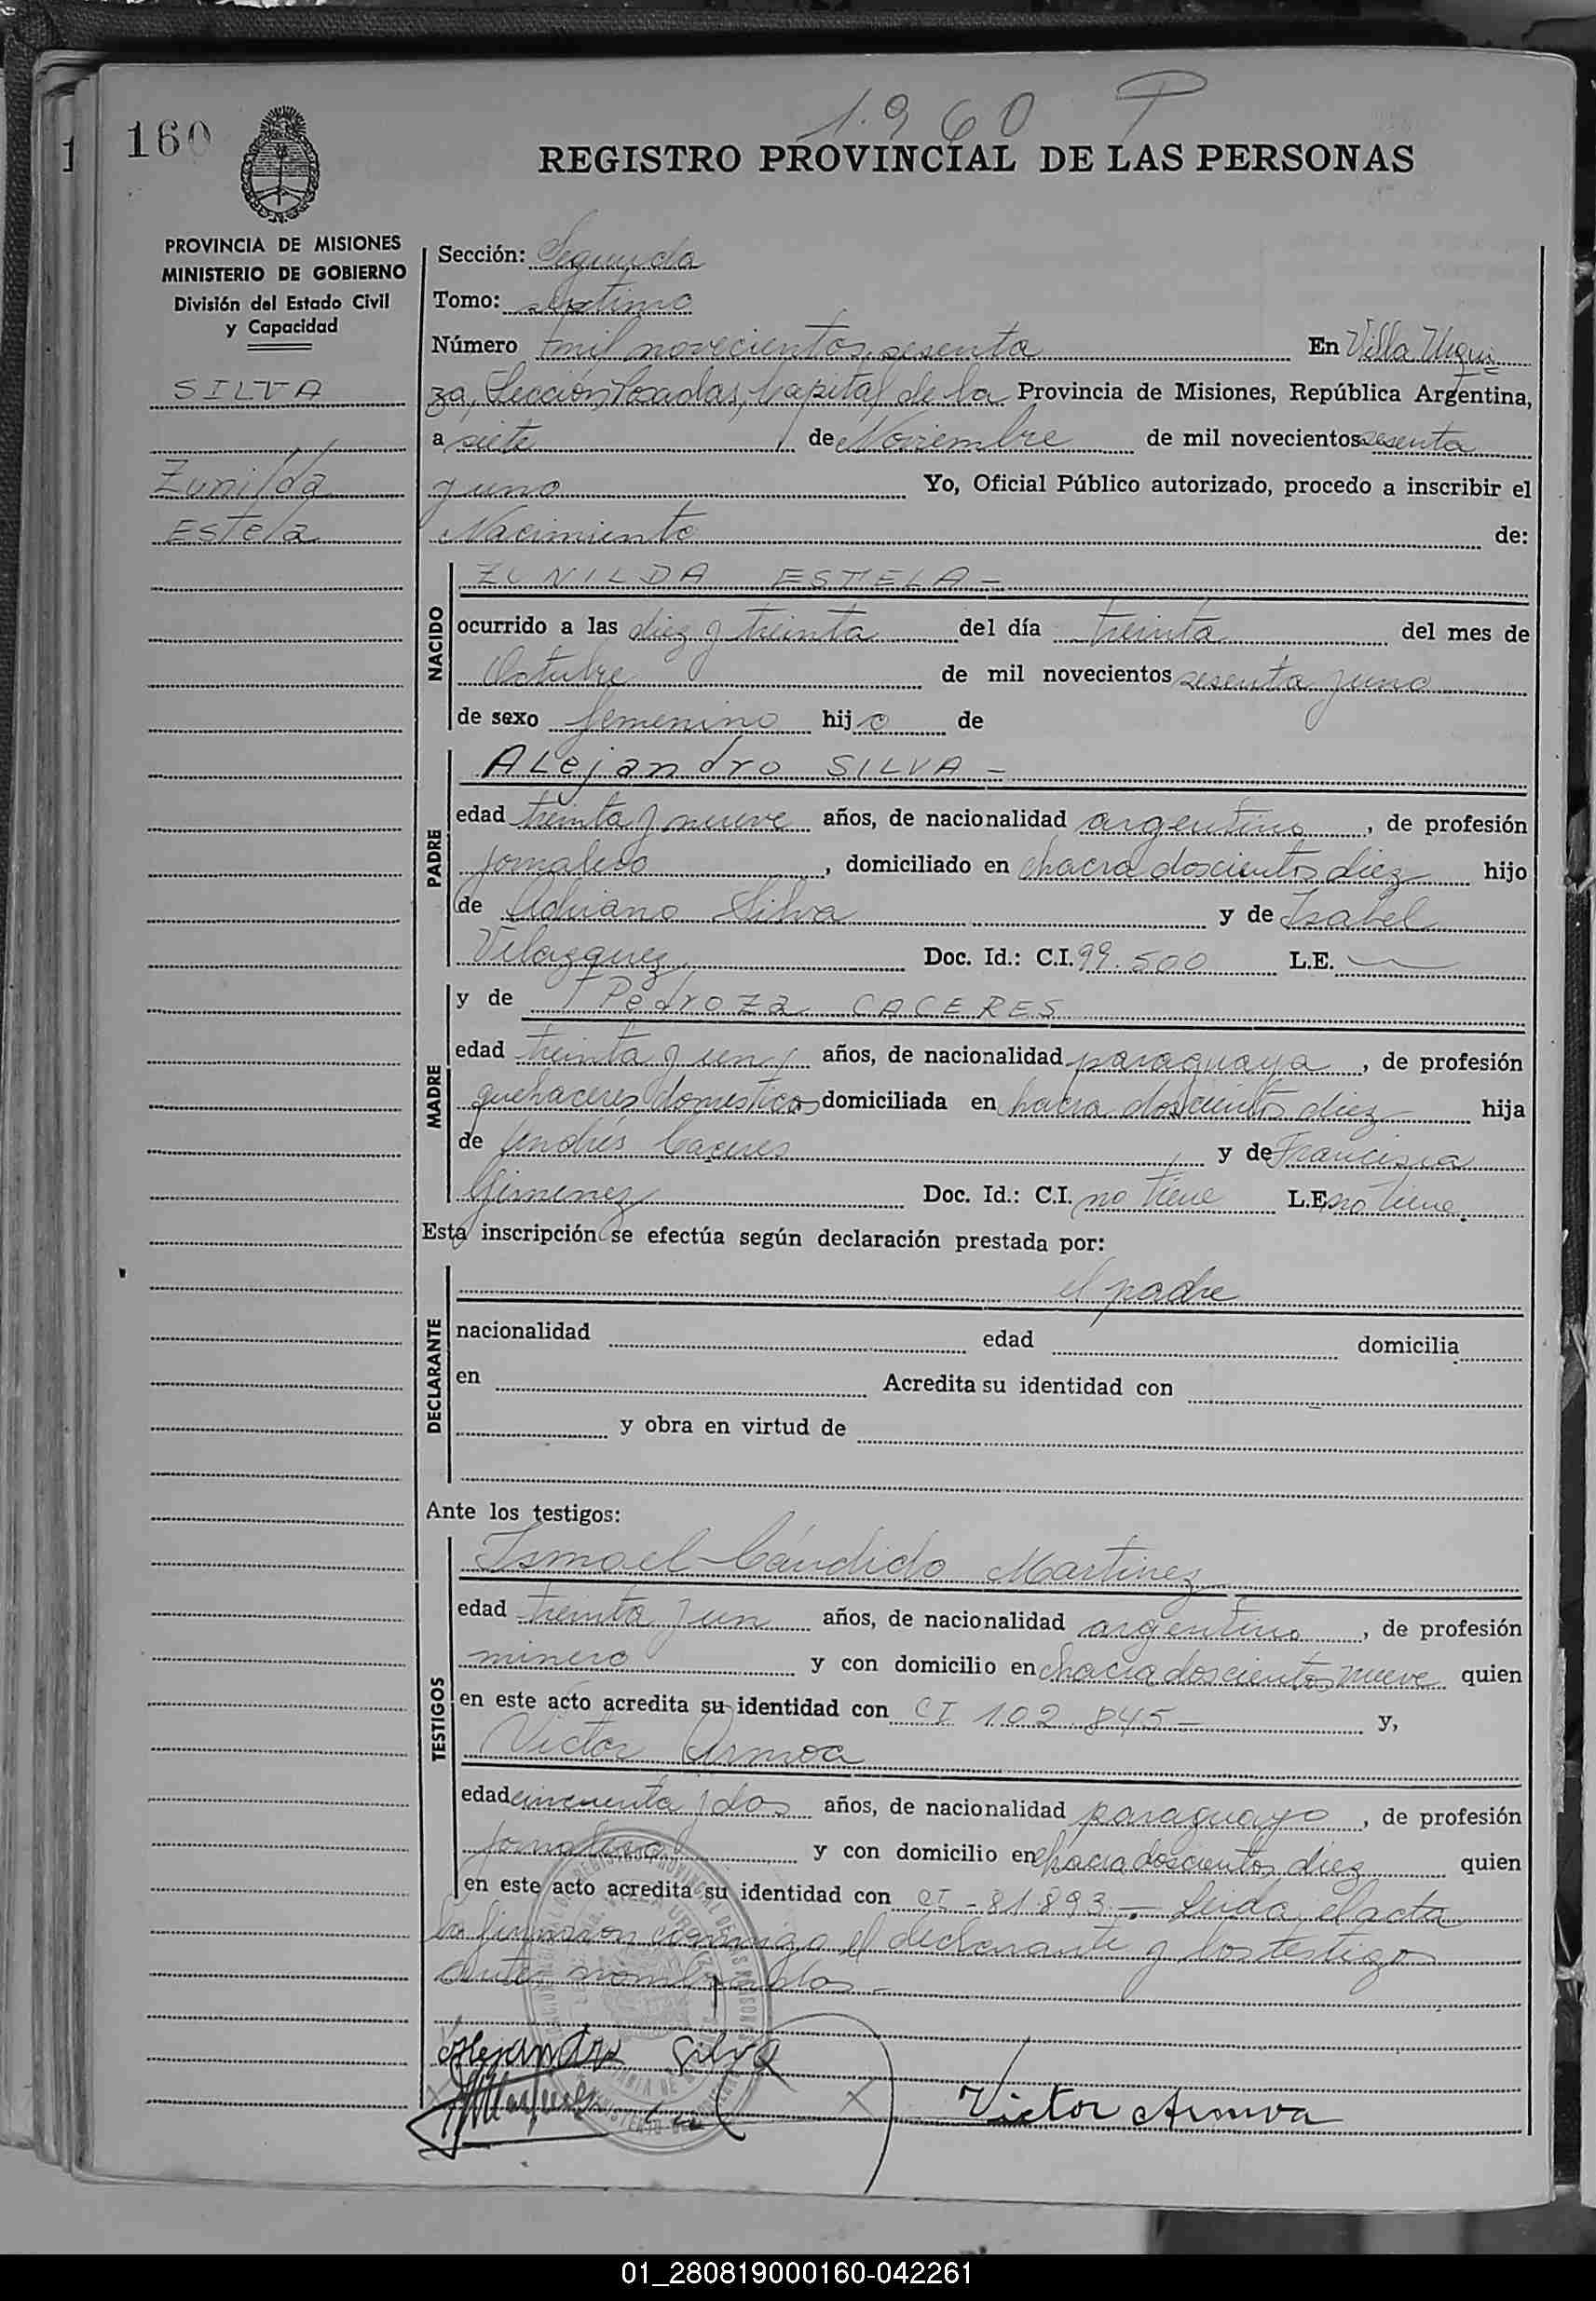 1.960 P
160
REGISTRO PROVINCIAL DE LAS PERSONAS
PROVINCIA DE MISIONES
MINISTERIO DE GOBIERNO
División del Estado Civil
y Capacidad
SILVA
Zunilda
Estela
Sección: Segunda
Tomo: septimo
Número mil novecientos sesenta En Villa Urqui
za, Sección Posadas, Capital de la Provincia de Misiones, República Argentina,
a siete de Noviembre de mil novecientos sesenta
y uno Yo, Oficial Público autorizado, procedo a inscribir el
Nacimiento de:
NACIDO
ZUNILDA ESTELA -
ocurrido a las diez y treinta del día treinta del mes de
Octubre de mil novecientos sesenta y uno
de sexo femenino hijo de
PADRE
ALejandro SILVA -
edad treinta y nueve años, de nacionalidad argentino, de profesión
jornalero, domiciliado en chacra doscientos diez hijo
de Adriano Silva y de Isabel
Vilazquez Doc. Id.: C.I. 99.500 L.E.
MADRE
y de Pedroza CACERES
edad treinta y un años, de nacionalidad paraguaya, de profesión
quehaceres domesticos domiciliada en chacra doscientos diez hija
de Andrés Caceres y de Francisca
Gimenez Doc. Id.: C.I. no tiene L.E. no tiene.
Esta inscripción se efectúa según declaración prestada por:
DECLARANTE
el padre
nacionalidad edad domicilia
en Acredita su identidad con
y obra en virtud de
Ante los testigos:
TESTIGOS
Ismael Cándido Martinez
edad treinta y un años, de nacionalidad argentino, de profesión
minero y con domicilio en chacra doscientos nueve quien
en este acto acredita su identidad con CI 102.845 - y,
Victor Armoa
edad cincuenta y dos años, de nacionalidad paraguayo, de profesión
jornalero y con domicilio en chacra doscientos diez quien
en este acto acredita su identidad con CI - 81.893 -. Leida el acta
la firmaron conmigo el declarante y los testigos
antes nombrados -
Alejandro Silva
Victor Armoa
01_280819000160-042261